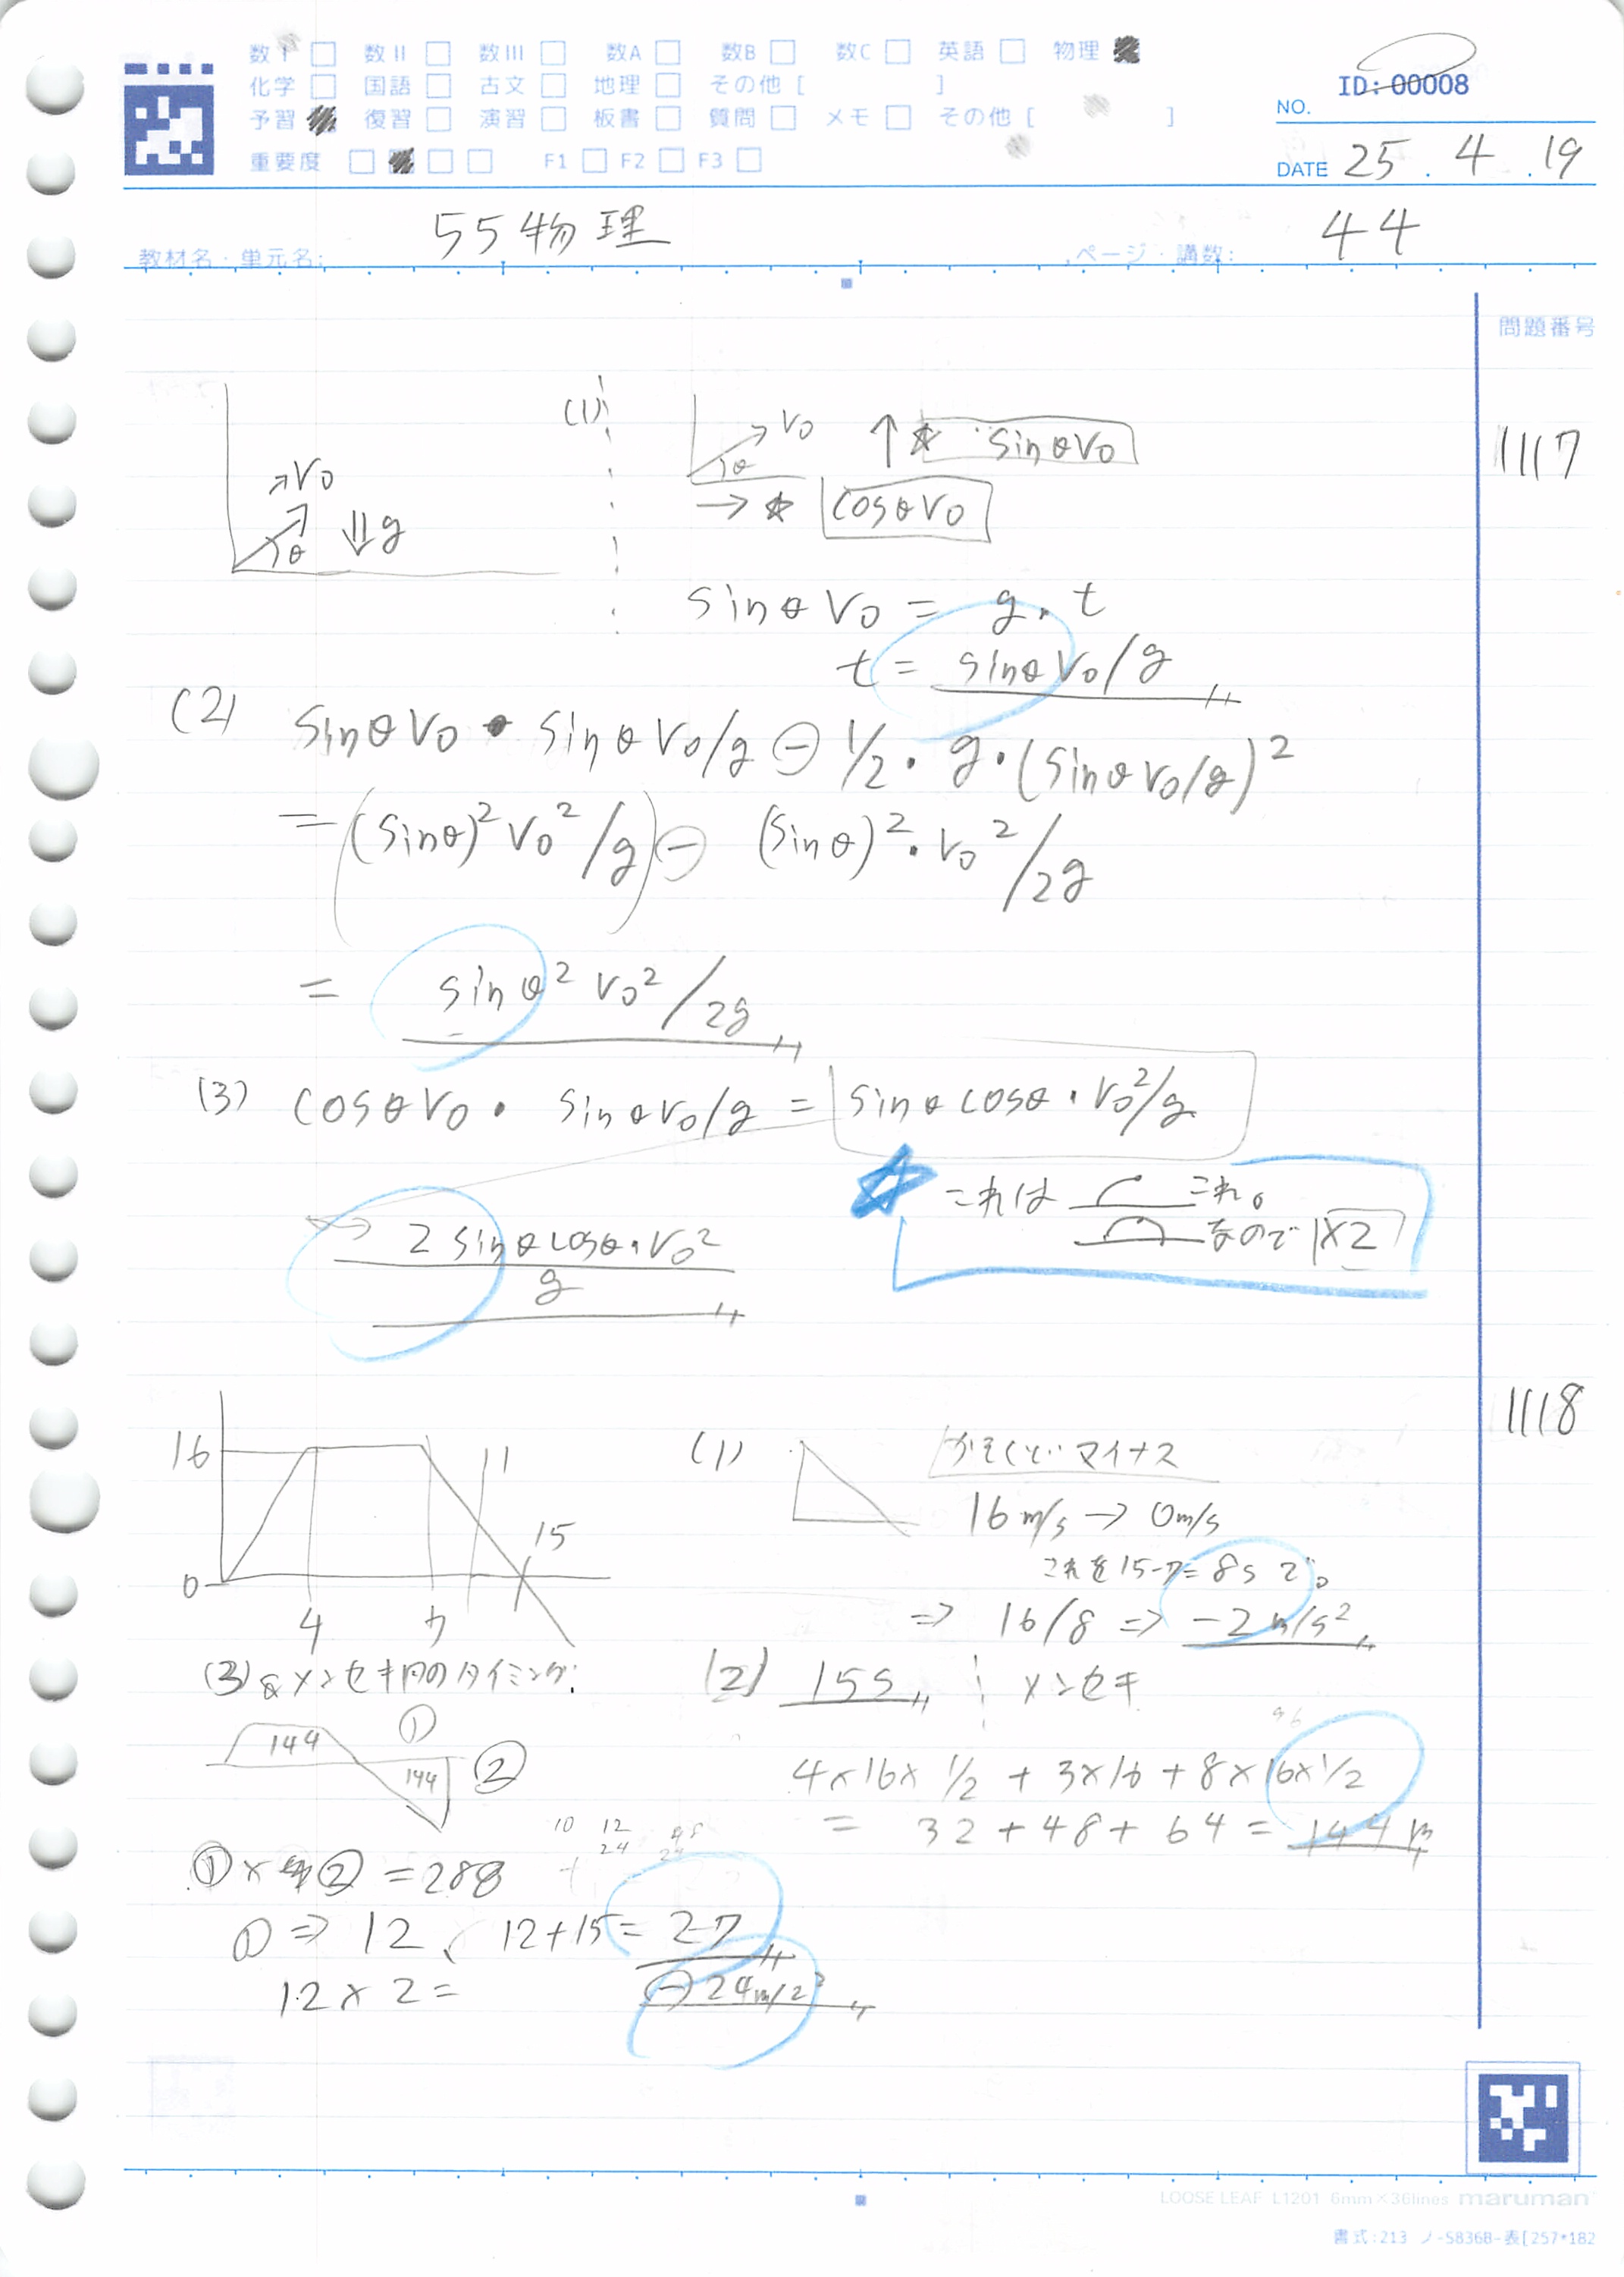 数I □ 数II □ 数III □ 数A □ 数B □ 数C □ 英語 □ 物理 ■
化学 □ 国語 □ 古文 □ 地理 □ その他 [ ]
予習 ■ 復習 □ 演習 □ 板書 □ 質問 □ メモ □ その他 [ ]
重要度 □ ■ □ □ F1 □ F2 □ F3 □
ID: 00008
NO.
DATE 25 . 4 . 19
教材名・単元名: 55物理 ページ・講数: 44
問題番号
1117
V₀ θ g
(1) V₀ θ ↑☆ sinθV₀
→☆ cosθV₀
sinθV₀ = g・t
t = sinθV₀/g
(2) sinθV₀・sinθV₀/g ⊖ 1/2・g・(sinθV₀/g)²
= (sinθ)²V₀²/g ⊖ (sinθ)²・V₀²/2g
= sinθ² V₀²/2g
(3) cosθV₀・sinθV₀/g = sinθcosθ・V₀²/g
☆ これは これ。
なので ×2
2sinθcosθ・V₀²
g
1118
16 11
15
0
4 7
(1) かそくど マイナス
16m/s → 0m/s
これを15-7=8sで。
⇒ 16/8 ⇒ -2m/s²
(2) 15s メンセキ
4×16×1/2 + 3×16 + 8×16×1/2
= 32+48+64 = 144m
(3) メンセキ 円のタイミング:
144 ① 144 ②
①×②=288
①⇒12、12+15=27
12×2= ⊖24m/2²
LOOSE LEAF L1201 6mm×36lines maruman
書式:213 ノ-S836B-表[257*182